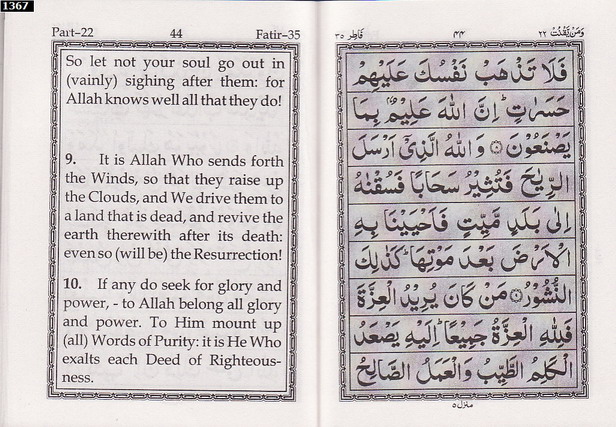 1367
Part–22 44 Fatir–35
So let not your soul go out in
(vainly) sighing after them: for
Allah knows well all that they do!
9. It is Allah Who sends forth
the Winds, so that they raise up
the Clouds, and We drive them to
a land that is dead, and revive the
earth therewith after its death:
even so (will be) the Resurrection!
10. If any do seek for glory and
power, - to Allah belong all glory
and power. To Him mount up
(all) Words of Purity: it is He Who
exalts each Deed of Righteous-
ness.
وَمَنْ يَّقْنُتْ ٢٢ ٤٤ فَاطِر ٣٥
فَلَا تَذْهَبْ نَفْسُكَ عَلَيْهِمْ
حَسَرٰتٍ ؕ اِنَّ اللّٰهَ عَلِيْمٌۢ بِمَا
يَصْنَعُوْنَ ۝٨ وَاللّٰهُ الَّذِيْۤ اَرْسَلَ
الرِّيٰحَ فَتُثِيْرُ سَحَابًا فَسُقْنٰهُ
اِلٰى بَلَدٍ مَّيِّتٍ فَاَحْيَيْنَا بِهِ
الْاَرْضَ بَعْدَ مَوْتِهَا ؕ كَذٰلِكَ
النُّشُوْرُ ۝٩ مَنْ كَانَ يُرِيْدُ الْعِزَّةَ
فَلِلّٰهِ الْعِزَّةُ جَمِيْعًا ؕ اِلَيْهِ يَصْعَدُ
الْكَلِمُ الطَّيِّبُ وَالْعَمَلُ الصَّالِحُ
منزل ٥